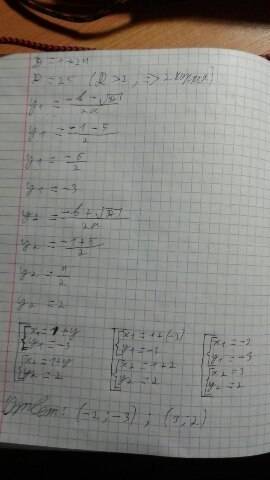 D = 1+24
D = 25 (D > 1, => 2 корня)
y₁ = (-b - √D) / 2a
y₁ = (-1 - 5) / 2
y₁ = -6/2
y₁ = -3
y₂ = (-b + √D) / 2a
y₂ = (-1 + 5) / 2
y₂ = 4/2
y₂ = 2
[{x₁ = 1+y [{x₁ = 1+2(-3) [{x₁ = -2
y₁ = -3 y₁ = -3 y₁ = -3
{x₂ = 1+y {x₂ = 1+2 {x₂ = 3
y₂ = 2 y₂ = 2 y₂ = 2
Ответ: (-2; -3) ; (3; 2)